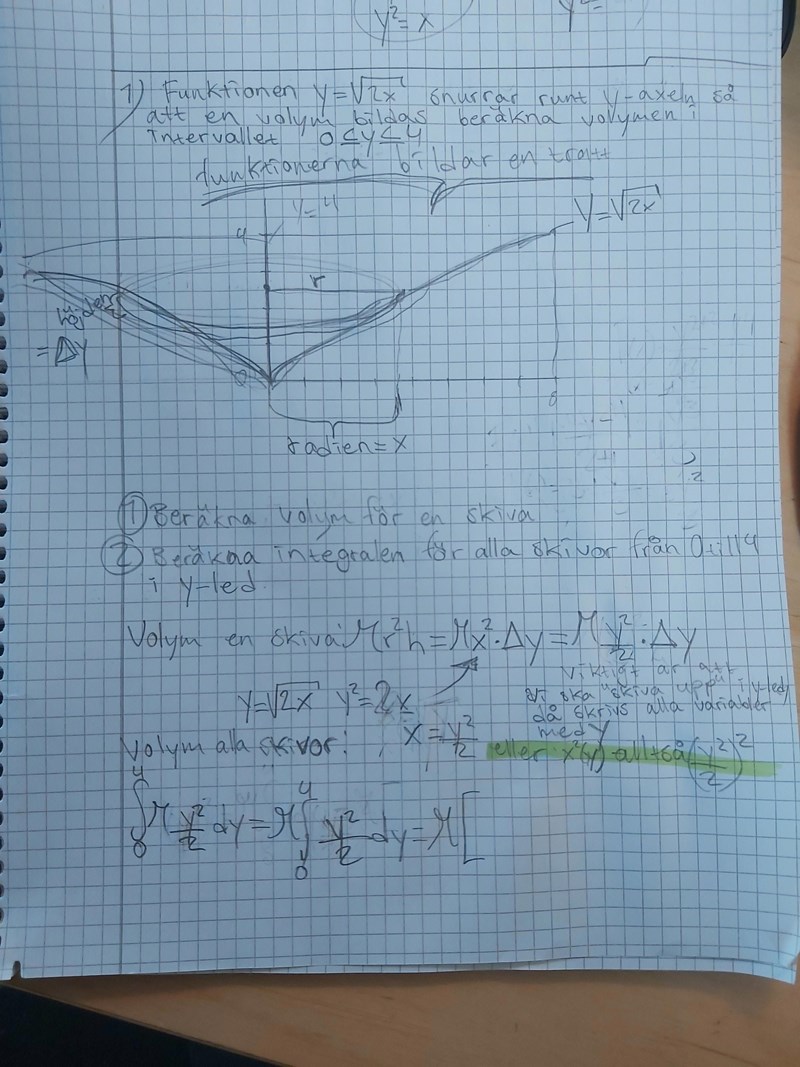 y² = x
y² =
1) Funktionen y=√2x snurrar runt y-axeln så
att en volym bildas beräkna volymen i
intervallet 0≤y≤4
funktionerna bildar en tratt
y=4
y=√2x
4
r
höjden
= Δy
0
8
radien = x
2
① Beräkna volym för en skiva
② Beräkna integralen för alla skivor från 0 till 4
i y-led.
Volym en skiva: πr²h = πx²·Δy = π y²/2 · Δy
Viktigt är att
vi ska "skiva upp" i y-led,
då skrivs alla variabler
med y
y=√2x y²=2x
x = y²/2
eller x²(y) alltså (y²/2)²
Volym alla skivor:
∫₀⁴ π y²/2 dy = π ∫₀⁴ y²/2 dy = π [